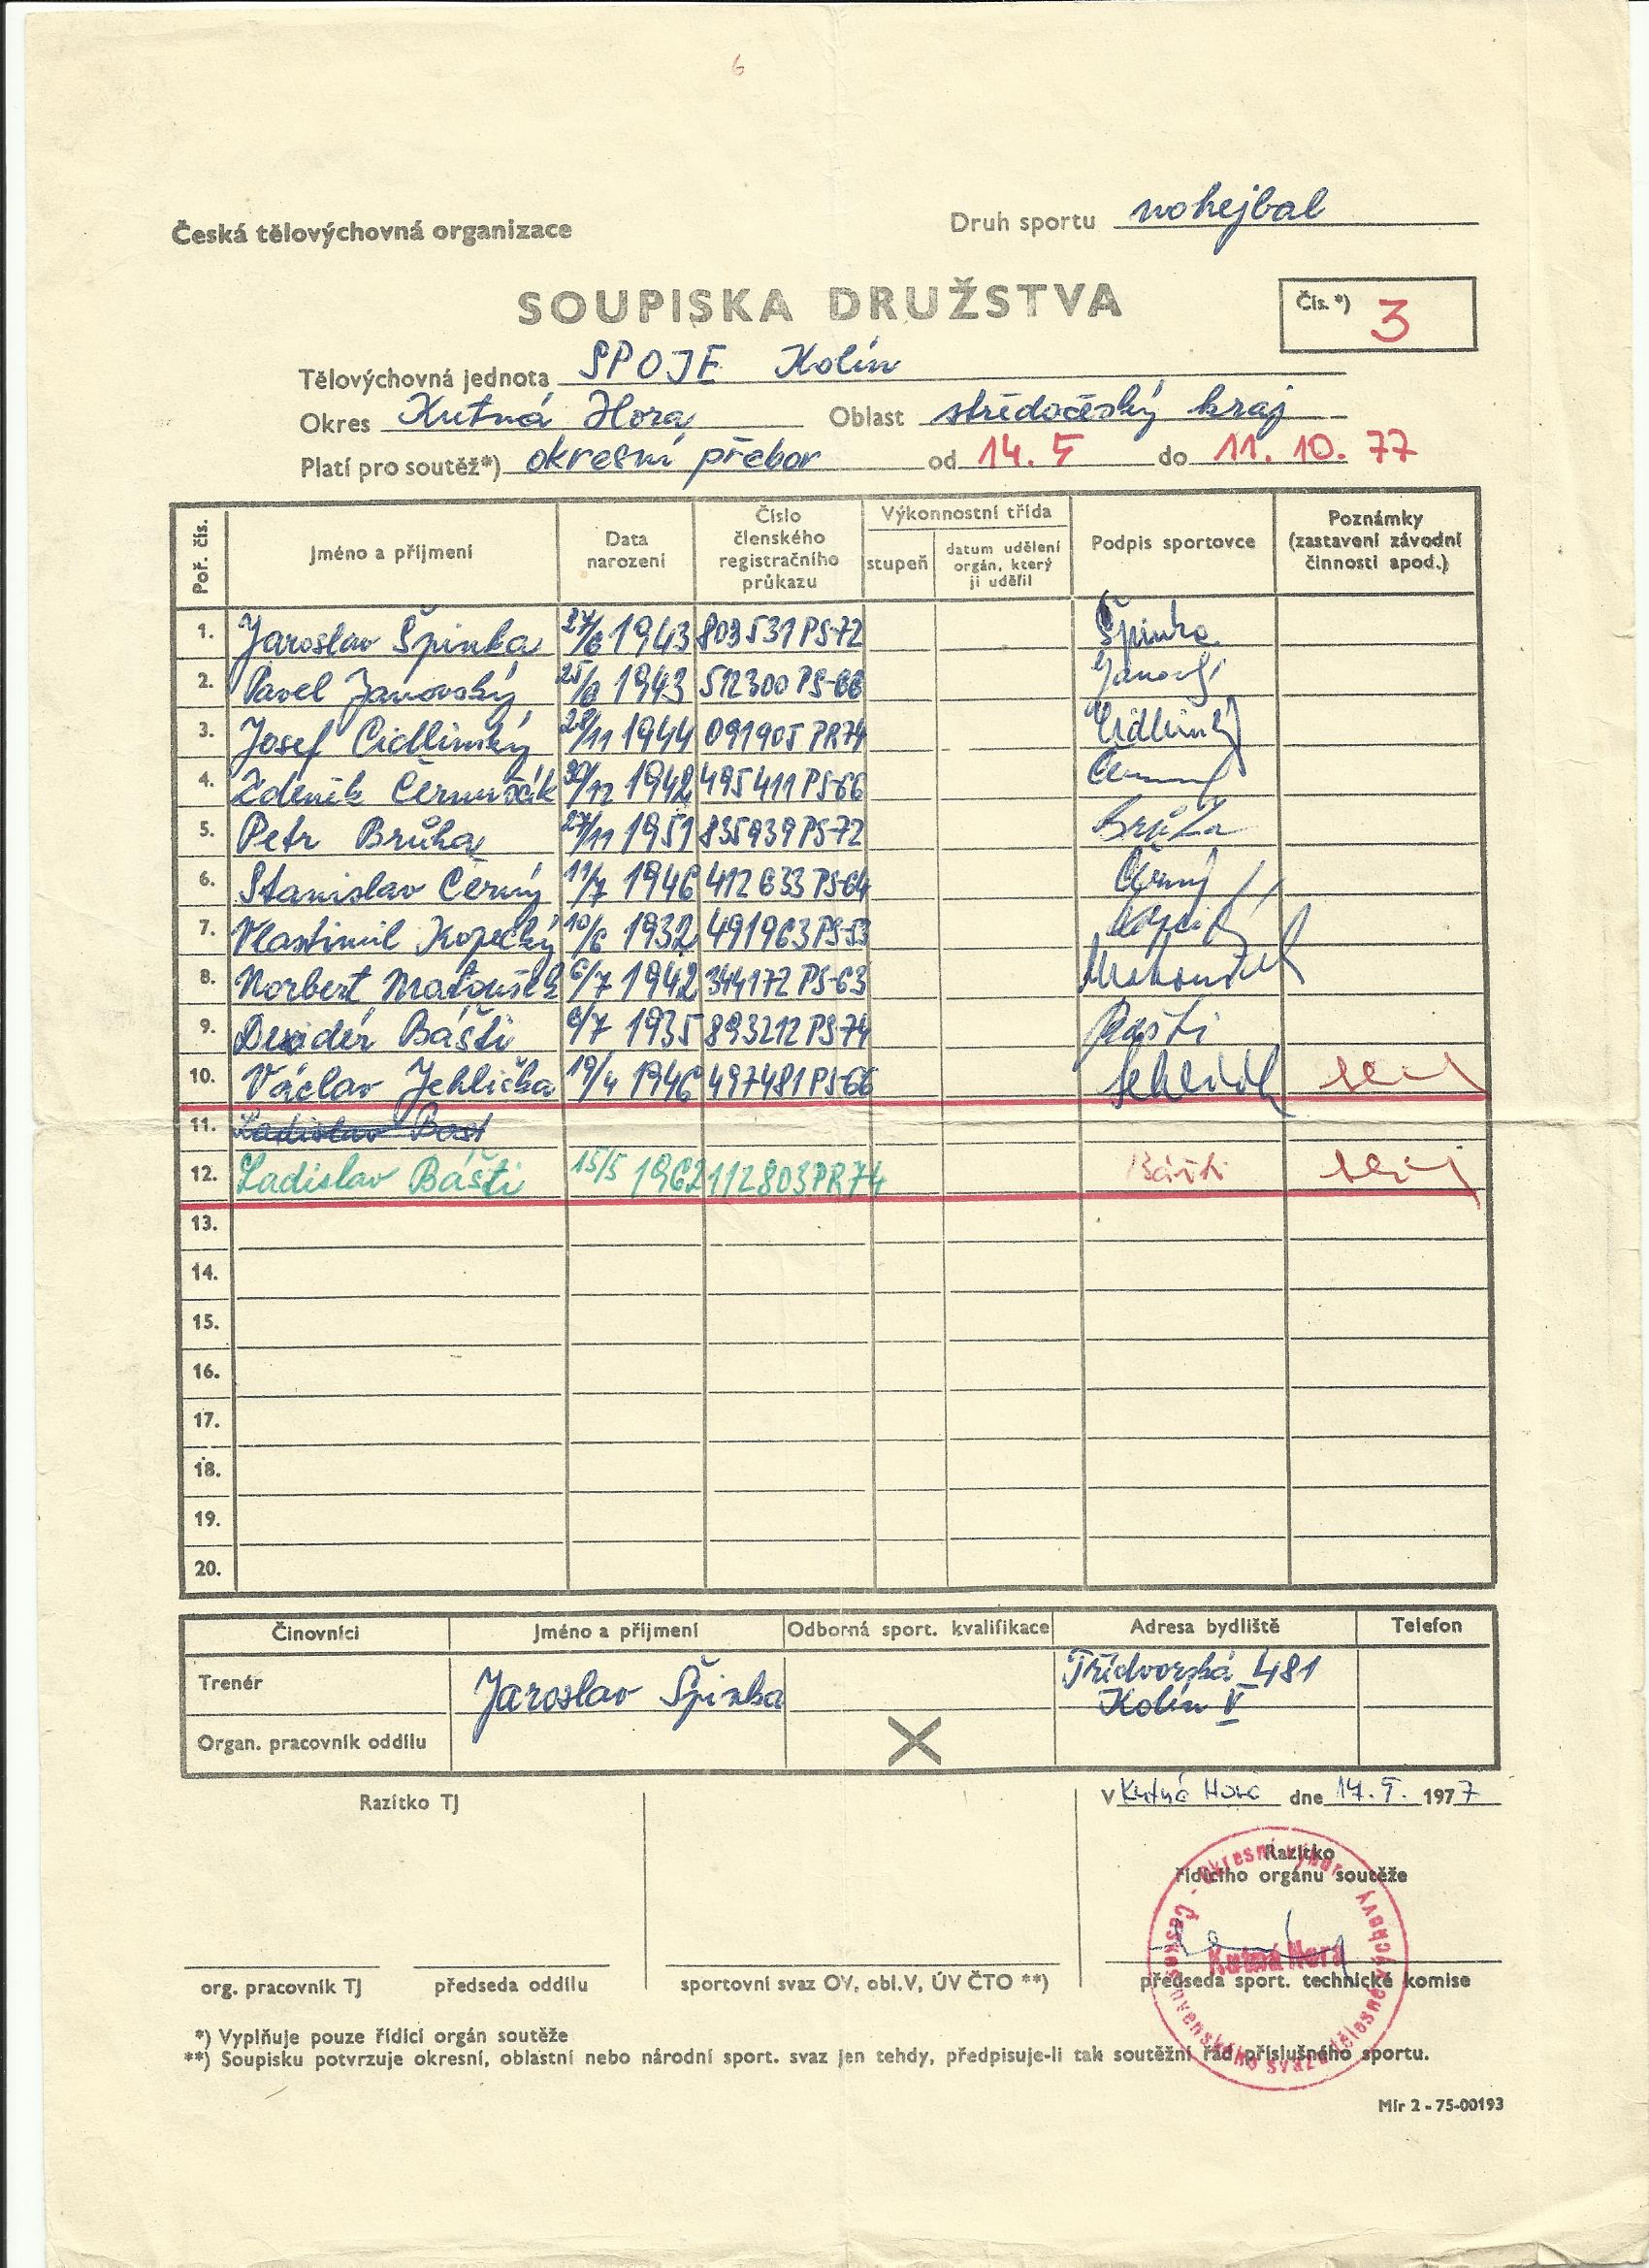 6
Česká tělovýchovná organizace
Druh sportu nohejbal
SOUPISKA DRUŽSTVA
Čís. *) 3
Tělovýchovná jednota SPOJE Kolín
Okres Kutná Hora Oblast středočeský kraj
Platí pro soutěž*) okresní přebor od 14. 5 do 11. 10. 77
Poř. čís. Jméno a příjmení Data narození Číslo členského registračního průkazu Výkonnostní třída stupeň datum udělení orgán, který ji udělil Podpis sportovce Poznámky (zastavení závodní činnosti apod.)
1. Jaroslav Špinka 27/6 1943 803531 PS-72 Špinka
2. Pavel Janovský 25/6 1943 512300 PS-66
3. Josef Cidlinský 28/11 1944 091905 PR74 Cidlinský
4. Zdeněk 30/12 1942 495411 PS-66
5. Petr Brůha 27/11 1951 835939 PS-72 Brůha
6. Stanislav Černý 11/7 1946 412633 PS-64 Černý
7. Vlastimil Kopecký 10/6 1932 491963 PS-53
8. Norbert Matoušek 6/7 1942 344172 PS-63 Matoušek
9. Dezidér Bášti 6/7 1935 893212 PS-74 Bášti
10. Václav Jehlička 19/4 1946 497481 PS-66
11. Ladislav Bast
12. Ladislav Bášti 15/5 1962 112803 PR74 Bášti
13.
14.
15.
16.
17.
18.
19.
20.
Činovníci Jméno a příjmení Odborná sport. kvalifikace Adresa bydliště Telefon
Trenér Jaroslav Špinka Třídvorská 481
Kolín V
Organ. pracovník oddílu
Razítko TJ
V Kutné Hoře dne 14. 5. 1977
Razítko
řídícího orgánu soutěže
Československého svazu tělesné výchovy - Okresní výbor
Kutná Hora
org. pracovník TJ předseda oddílu sportovní svaz OV, obl.V, ÚV ČTO **) předseda sport. technické komise
*) Vyplňuje pouze řídící orgán soutěže
**) Soupisku potvrzuje okresní, oblastní nebo národní sport. svaz jen tehdy, předpisuje-li tak soutěžní řád příslušného sportu.
Mír 2 - 75-00193